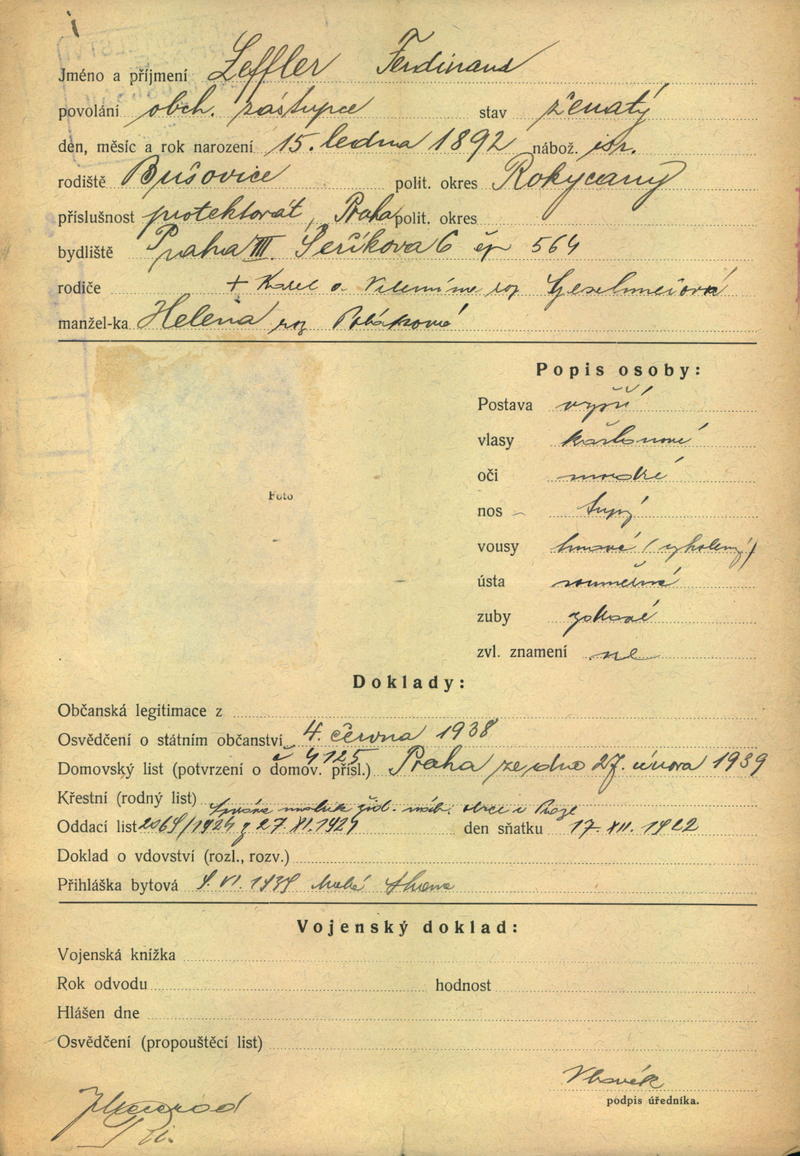 Jméno a příjmení Leffler Ferdinand
povolání obch. zástupce stav ženatý
den, měsíc a rok narození 15. ledna 1892 nábož. isr.
rodiště Bušovice polit. okres Rokycany
příslušnost protektorát, Praha polit. okres
bydliště Praha III. Šeříkova 6 čp 564
rodiče + Karel a Vilemína roz
manžel-ka Helena roz
Popis osoby:
Postava vyšší
vlasy kaštanové
oči modré
Foto
nos tupý
vousy tmavé (vyholený)
ústa souměrná
zuby zdravé
zvl. znamení ne
Doklady:
Občanská legitimace z
Osvědčení o státním občanství 4. června 1938
č 4125
Domovský list (potvrzení o domov. přísl.) Praha ze dne 27. února 1939
Křestní (rodný list) Správa matrik žid. náb. obce v Praze
Oddací list z 27. XI. den sňatku 17. XII. 1922
Doklad o vdovství (rozl., rozv.)
Přihláška bytová Malá Strana
Vojenský doklad:
Vojenská knížka
Rok odvodu hodnost
Hlášen dne
Osvědčení (propouštěcí list)
podpis úředníka.